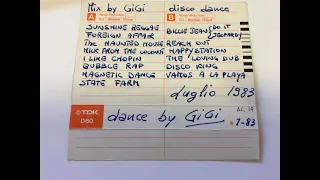 Mix by GiGi disco dance
A B
SUNSHINE REGGAE
FOREIGN AFFAIR
The HAUNTED HOUSE
MILK FROM THE COCONUT
I LIKE CHOPIN
BUBBLE RAP
MAGNETIC DANCE
STATE FARM
BILLIE JEAN / DO IT
JEOPARDY
REACH OUT
HAPPY STATION
THE LOVING DUB
DISCO KING
VAMOS A LA PLAYA
Luglio 1983
TDK
D60
dance by GiGi
7-83